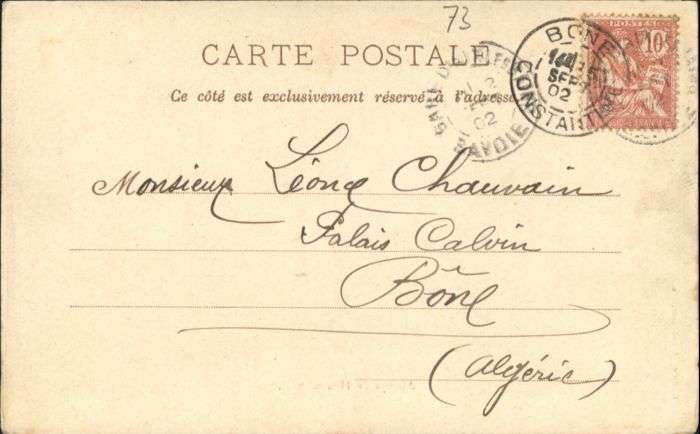 73
CARTE POSTALE
Ce côté est exclusivement réservé à l'adresse.
POSTES
10
BONE
SEPT
02
CONSTANTINE
2
02
SAVOIE
Monsieur Léone Chauvain
Palais Calvin
Bône
(Algérie)